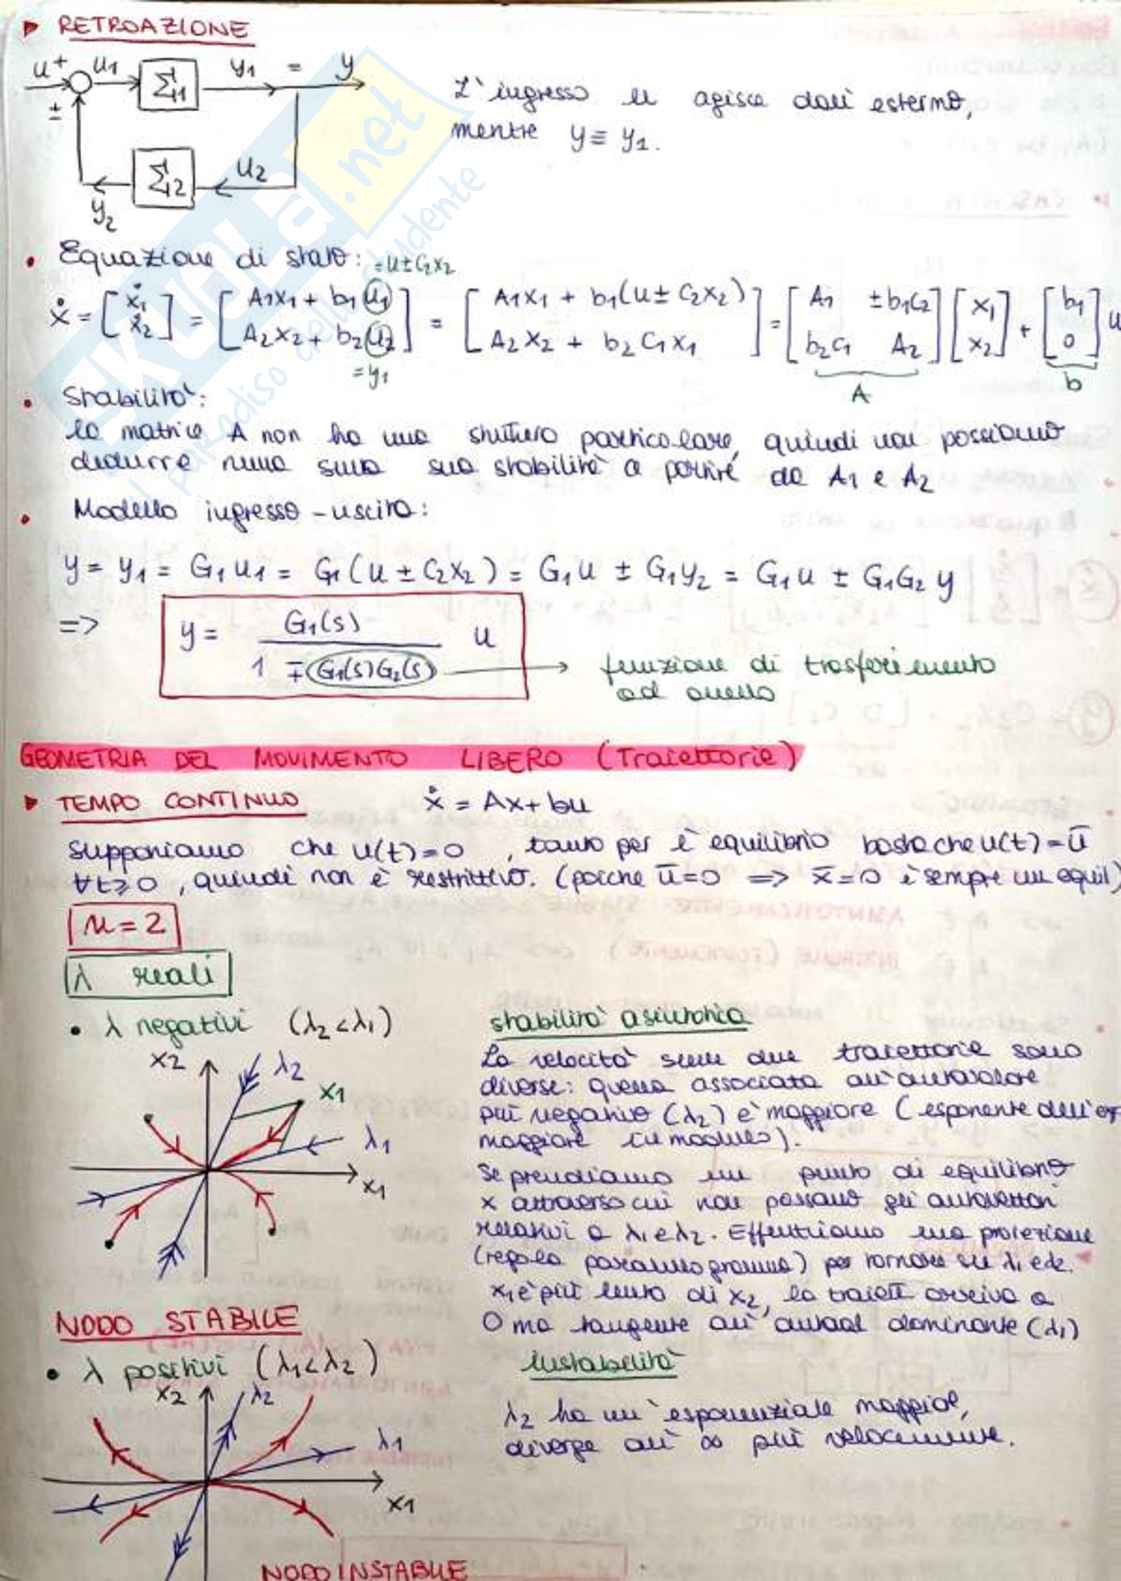 ▶ RETROAZIONE
u + u1 Σ1 y1 = y
±
Σ2 u2
y2
L'ingresso u agisce dall'esterno,
mentre y ≡ y1.
• Equazione di stato: = u ± C2x2
ẋ = [ẋ1 ẋ2] = [A1x1 + b1 u1 A2x2 + b2 u2] = [A1x1 + b1(u ± C2x2) A2x2 + b2 C1 x1] = [A1 ±b1C2 b2C1 A2] [x1 x2] + [b1 0] u
= y1 A b
• Stabilità:
la matrice A non ha una struttura particolare, quindi non possiamo
dedurre nulla sulla sua stabilità a partire da A1 e A2
• Modello ingresso-uscita:
y = y1 = G1 u1 = G1(u ± C2x2) = G1u ± G1y2 = G1u ± G1G2 y
=> y = G1(s) / 1 ∓ G1(s)G2(s) u → funzione di trasferimento
ad anello
GEOMETRIA DEL MOVIMENTO LIBERO (Traiettorie)
▶ TEMPO CONTINUO ẋ = Ax + bu
Supponiamo che u(t)=0, tanto per è equilibrio basta che u(t)=ū
∀t≥0, quindi non è restrittivo. (poiché ū=0 => x̄=0 è sempre un equil)
n=2
λ reali
• λ negativi (λ2<λ1) stabilità asintotica
x2 λ2 x1 λ1 x1
La velocità sulle due traiettorie sono
diverse: quella associata all'autovalore
più negativo (λ2) è maggiore (esponente dell'exp
maggiore in modulo).
Se prendiamo un punto di equilibrio
x attraverso cui non passano gli autovettori
relativi a λ1 e λ2. Effettuiamo una proiezione
(regola parallelogramma) per tornare su λ1 e λ2.
x1 è più lento di x2, la traiett arriva a
0 ma tangente all'autoval dominante (λ1)
NODO STABILE
• λ positivi (λ1<λ2) instabilità
x2 λ2 λ1 x1
λ2 ha un'esponenziale maggiore,
diverge all'∞ più velocemente.
NODO INSTABILE
SKUOLA.net
il paradiso dello studente